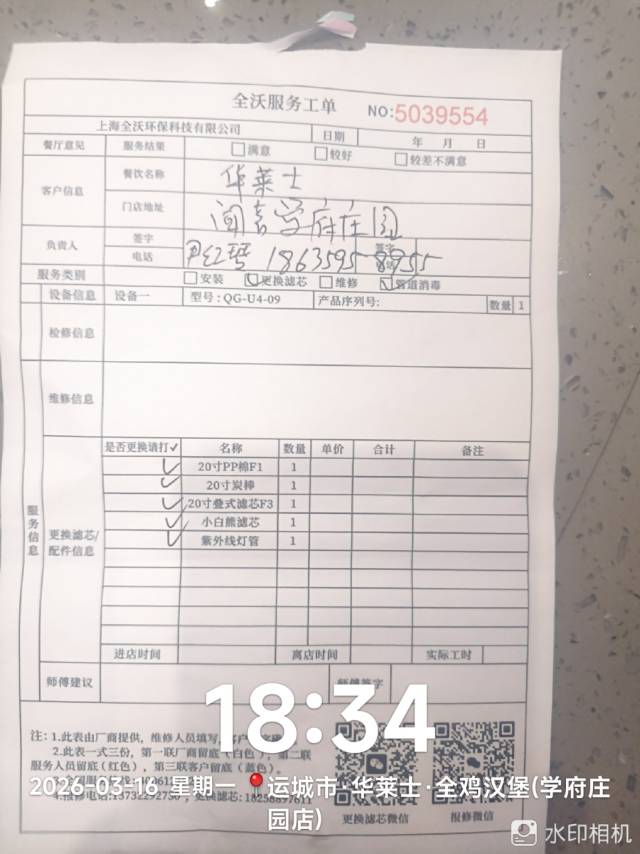 全沃服务工单 NO:5039554
上海全沃环保科技有限公司 日期 年 月 日
餐厅意见 服务结果 满意 较好 较差不满意
客户信息 餐饮名称 华莱士
门店地址 闻喜学府庄园
负责人 签字 签字
电话 18635958955
服务类别 安装 更换滤芯 维修 管道消毒
设备信息 设备一 型号:QG-U4-09 产品序列号: 数量 1
检修信息
维修信息
服务信息
更换滤芯/配件信息
是否更换请打✓ 名称 数量 单价 合计 备注
✓ 20寸PP棉F1 1
✓ 20寸炭棒 1
✓ 20寸叠式滤芯F3 1
✓ 小白熊滤芯 1
✓ 紫外线灯管 1
进店时间 离店时间 实际工时
师傅建议 师傅签字
18:34
注: 1.此表由厂商提供, 维修人员填写,
2.此表一式三份, 第一联厂商留底(白色), 第二联
服务人员留底(红色), 第三联客户留底(蓝色).
2026-03-16 星期一 运城市·华莱士·全鸡汉堡(学府庄园店)
4.报修电话:13732292750 , 更换滤芯:18258897611
更换滤芯微信 报修微信
水印相机